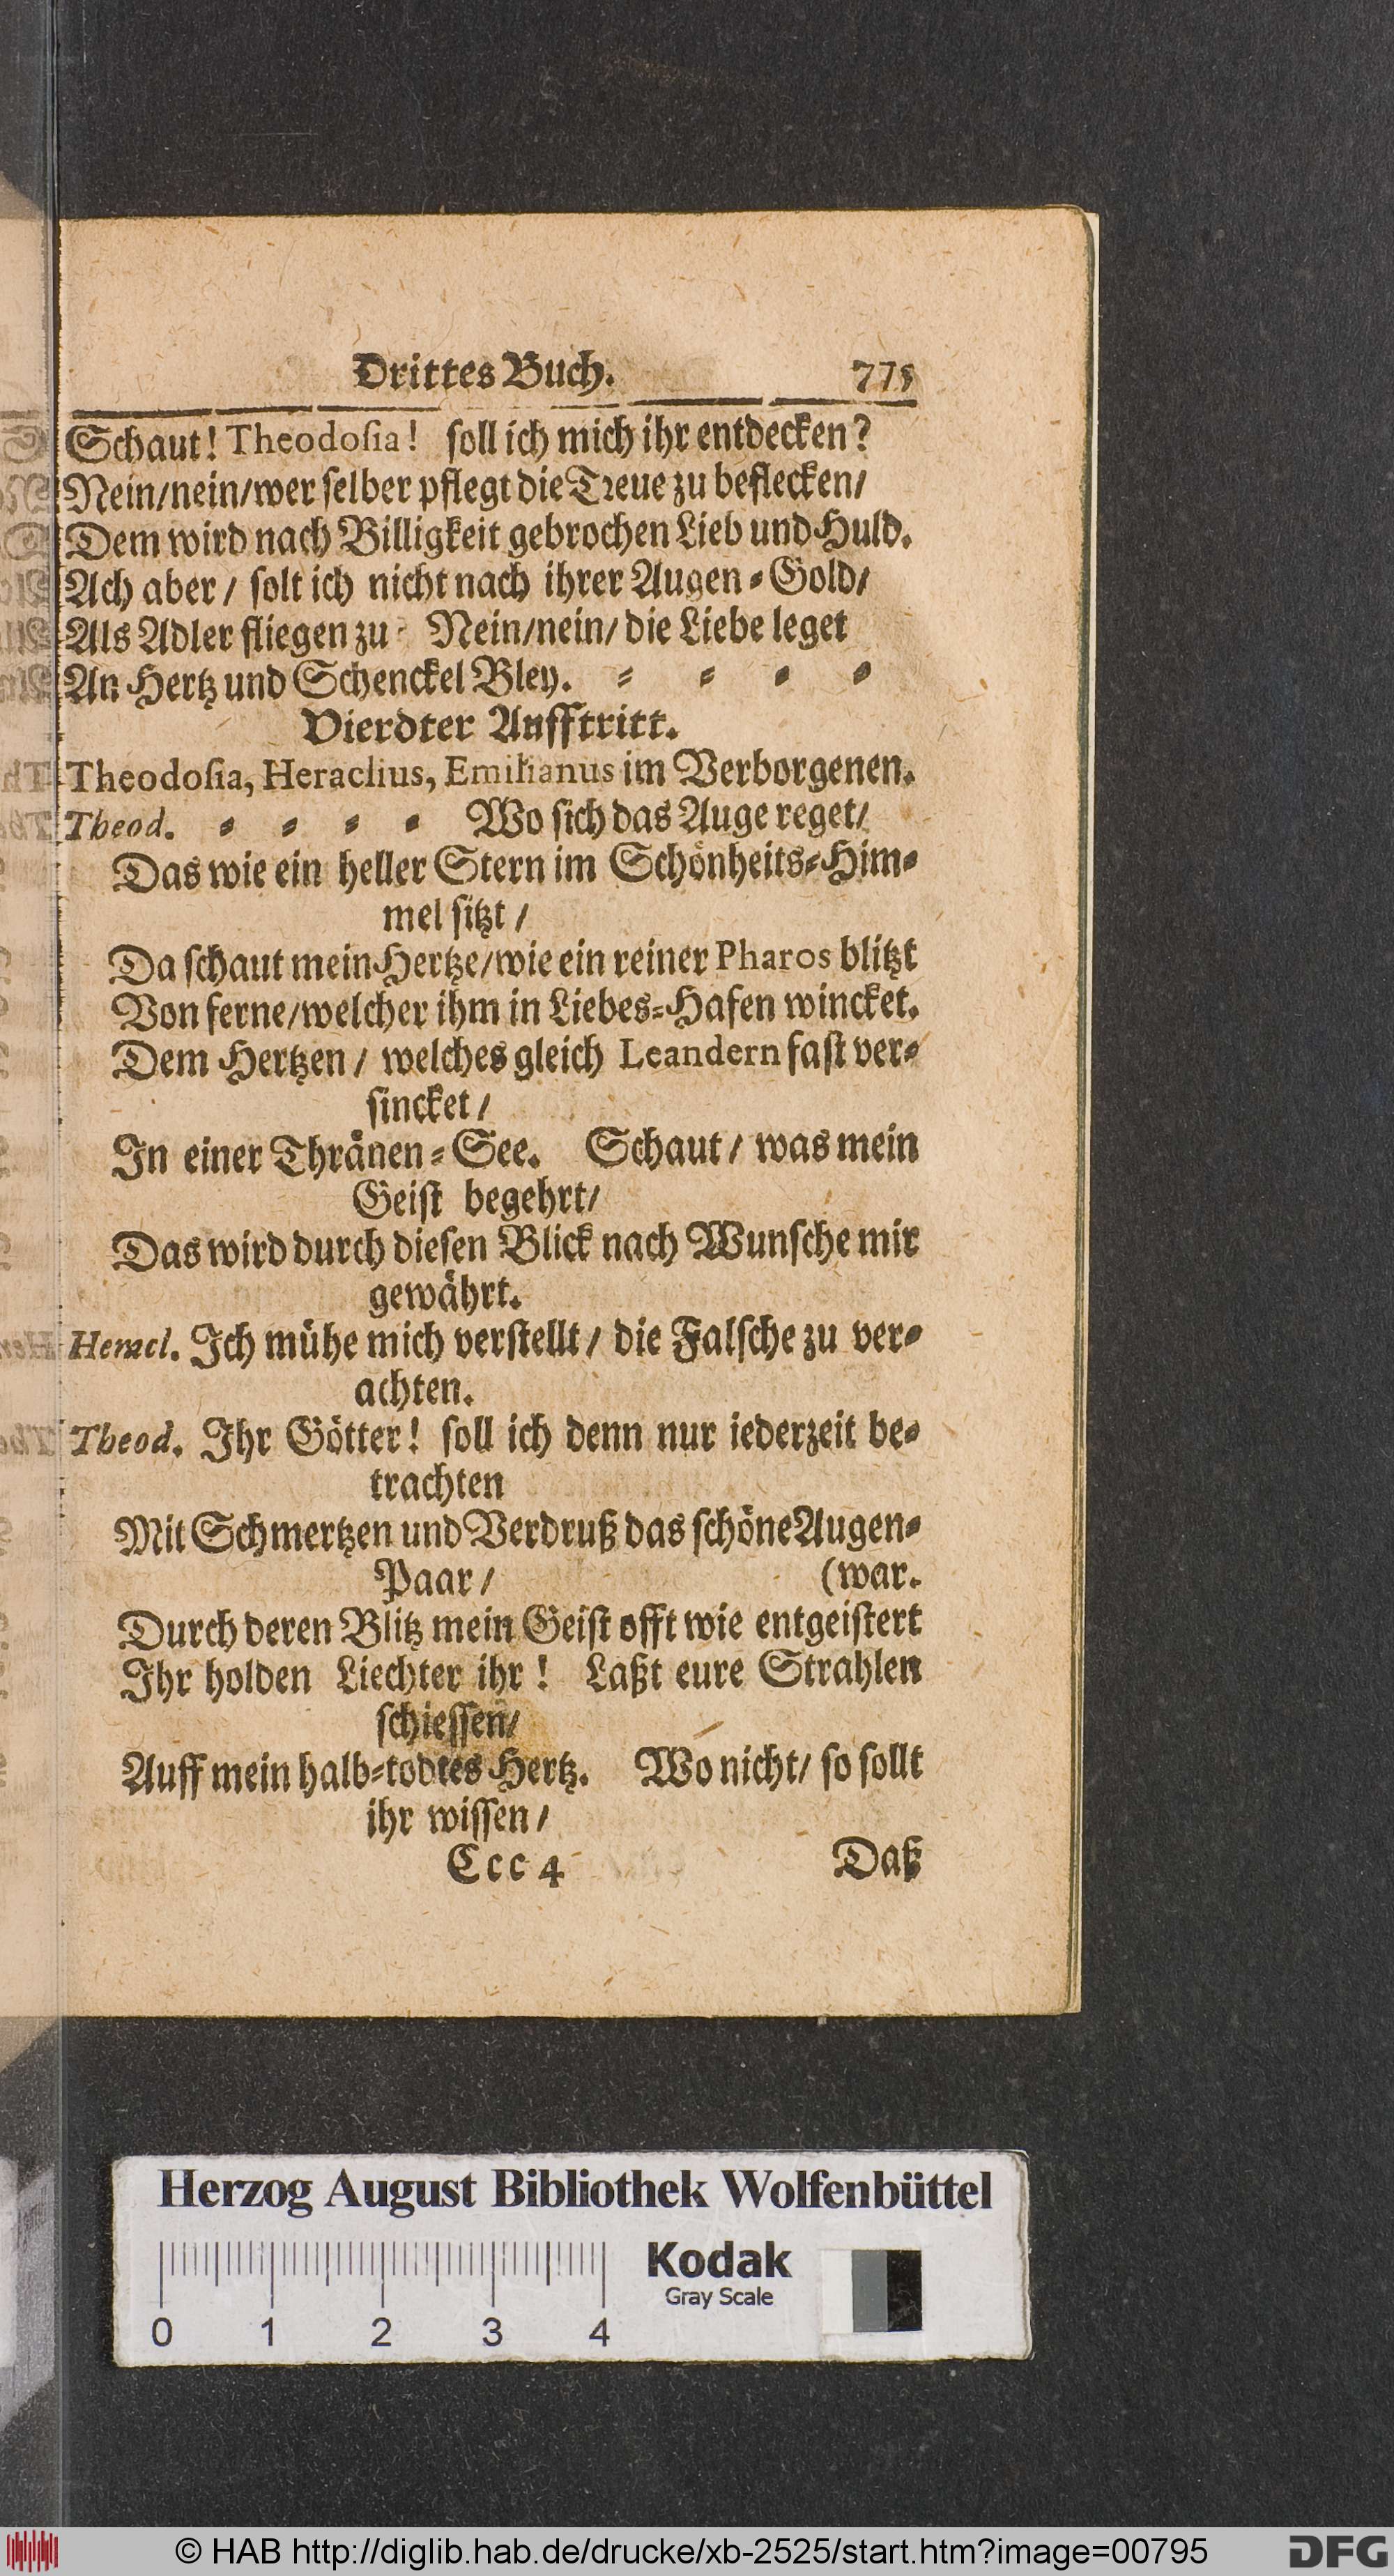 Drittes Buch. 775
Schaut! Theodosia! soll ich mich ihr entdecken?
Nein/nein/wer selber pflegt die Treue zu beflecken/
Dem wird nach Billigkeit gebrochen Lieb und Huld.
Ach aber/ solt ich nicht nach ihrer Augen-Gold/
Als Adler fliegen zu Nein/nein/ die Liebe leget
An Hertz und Schenckel Bley. - - - -
Vierdter Aufftritt.
Theodosia, Heraclius, Emilianus im Verborgenen.
Theod. - - - - Wo sich das Auge reget/
Das wie ein heller Stern im Schönheits-Him-
mel sitzt/
Da schaut mein Hertze/wie ein reiner Pharos blitzt
Von ferne/welcher ihm in Liebes-Hafen wincket.
Dem Hertzen/ welches gleich Leandern fast ver-
sincket/
In einer Thränen-See. Schaut/ was mein
Geist begehrt/
Das wird durch diesen Blick nach Wunsche mir
gewährt.
Heracl. Ich mühe mich verstellt/ die Falsche zu ver-
achten.
Theod. Ihr Götter! soll ich denn nur iederzeit be-
trachten
Mit Schmertzen und Verdruß das schöne Augen-
Paar/ (war.
Durch deren Blitz mein Geist offt wie entgeistert
Ihr holden Liechter ihr! Laßt eure Strahlen
schiessen/
Auff mein halb-todtes Hertz. Wo nicht/ so sollt
ihr wissen/
Ccc 4 Daß
Herzog August Bibliothek Wolfenbüttel
Kodak
Gray Scale
0 1 2 3 4
© HAB http://diglib.hab.de/drucke/xb-2525/start.htm?image=00795
DFG